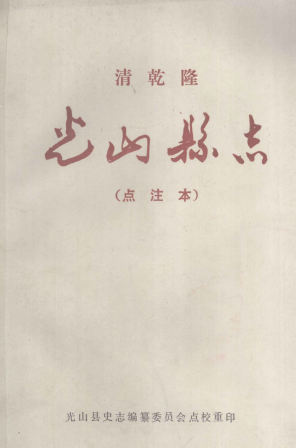 清乾隆
光山縣志
(点注本)
光山县史志编纂委员会点校重印